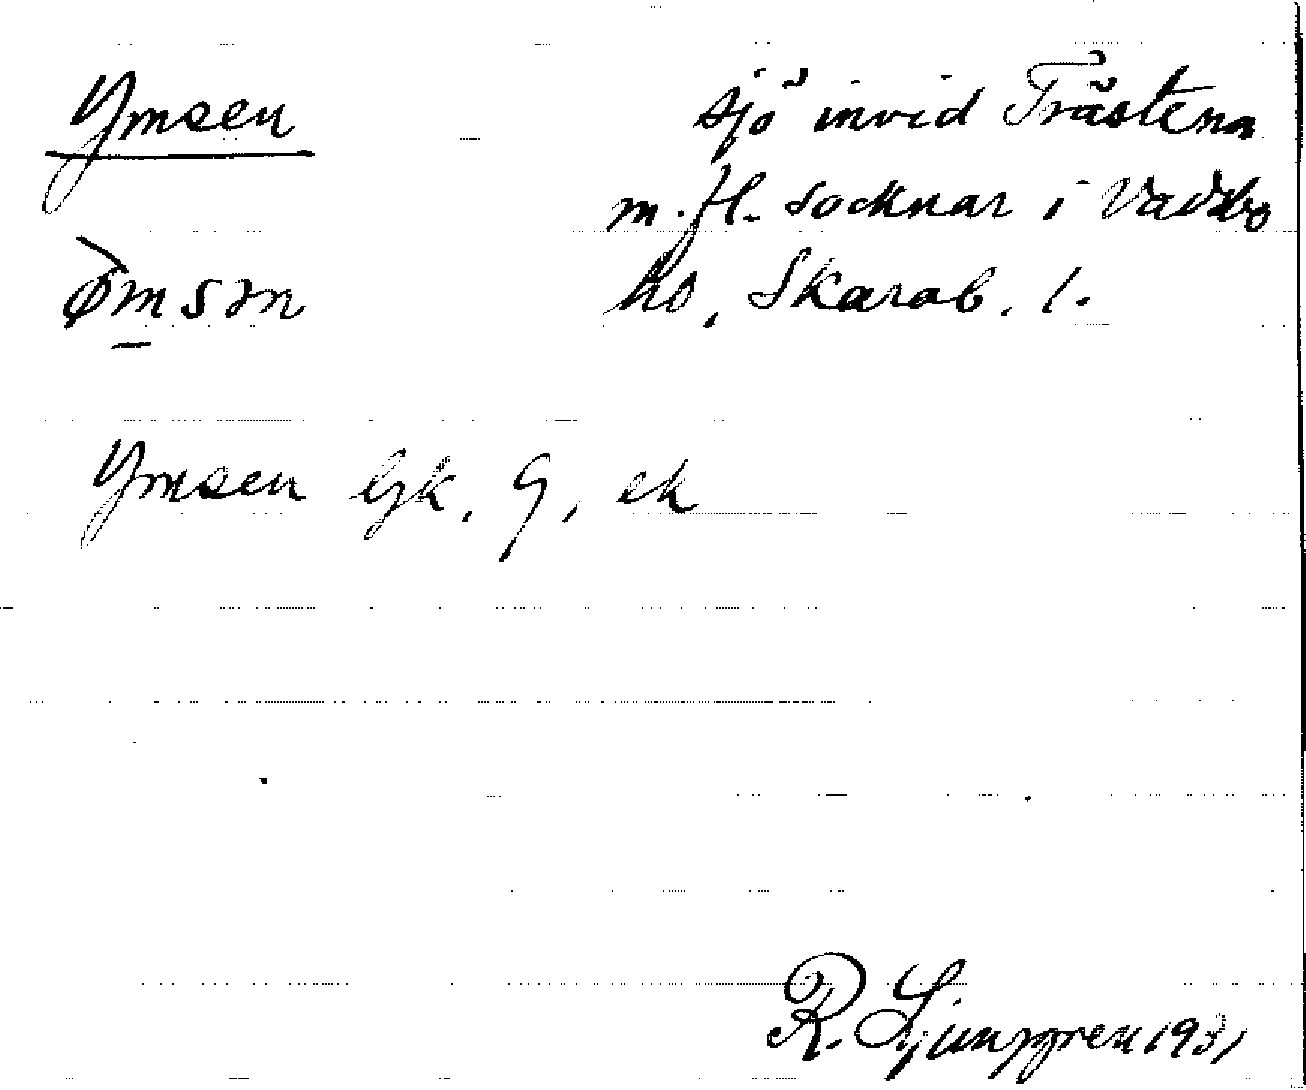 Ymsen
sjö invid Trästena
m. fl. socknar i Vadsbo
hd, Skarab. l.
Ymsen Gk. 9, ek
R. Ljunggren 1931